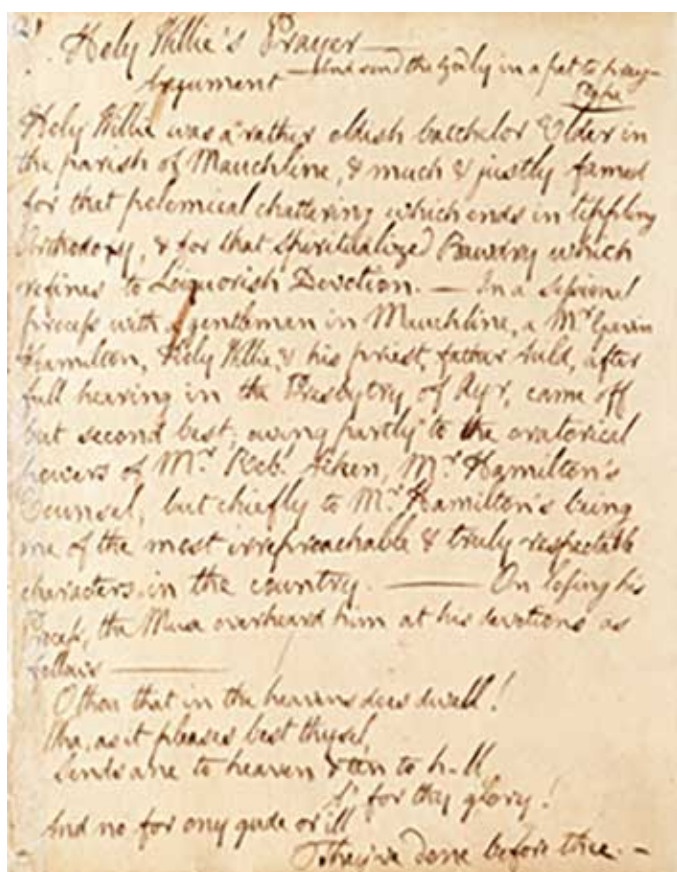 Holy Willie's Prayer —
— And send the Godly in a pet to pray —
Argument
Pope
Holy Willie was a rather oldish batchelor Elder in
the parish of Mauchline, & much & justly famed
for that polemical chattering which ends in tippling
Orthodoxy, & for that Spiritualized Bawdry which
refines to Liquorish Devotion. — In a Sessional
process with a gentleman in Mauchline, a Mr Gavin
Hamilton, Holy Willie, & his priest, father Auld, after
full hearing in the Presbytry of Ayr, came off
but second best; owing partly to the oratorical
powers of Mr. Robt. Aiken, Mr. Hamilton's
Counsel; but chiefly to Mr. Hamilton's being
one of the most irreproachable & truly respectable
characters in the country. — On losing his
Process, the Muse overheard him at his devotions as
follows —
O thou that in the heavens does dwell!
Wha, as it pleases best thysel,
Sends ane to heaven & ten to h-ll,
A' for thy glory!
And no for ony gude or ill
They've done before thee. —